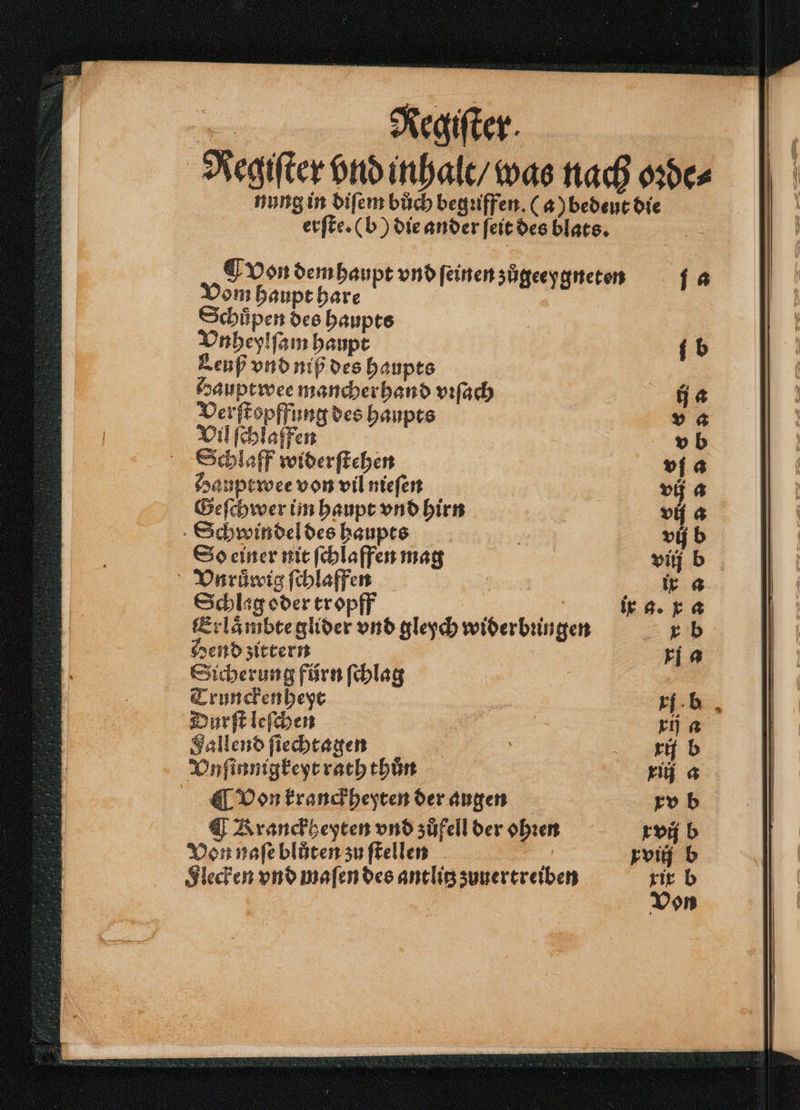 Regiſter.
Regiſter vnd inhalt/ was nach orde⸗
nung in diſem bůch begriffen. (a) bedeut die
erſte. (b) die ander ſeit des blats.
¶ Von dem haupt vnd ſeinen zůgeeygneten j a
Vom haupt hare
Schůpen des haupts
Vnheylſam haupt j b
Leuß vnd niß des haupts
Hauptwee mancherhand vrſach ij a
Verſtopffung des haupts v a
Vil ſchlaffen v b
Schlaff widerſtehen vj a
Hauptwee von vil nieſen vij a
Geſchwer im haupt vnd hirn vij a
Schwindel des haupts vij b
So einer nit ſchlaffen mag viij b
Vnrůwig ſchlaffen ix a
Schlag oder tropff ix a. x a
Erlåmbte glider vnd gleych widerbringen x b
Hend zittern xj a
Sicherung fürn ſchlag
Trunckenheyt xj. b
Durſt leſchen xij a
Fallend ſiechtagen xij b
Vnſinnigkeyt rath thůn xiij a
¶ Von kranckheyten der augen xv b
¶ Kranckheyten vnd zůfell der ohren xvij b
Von naſe blůten zu ſtellen xviij b
Flecken vnd maſen des antlitz zuuertreiben xix b
Von